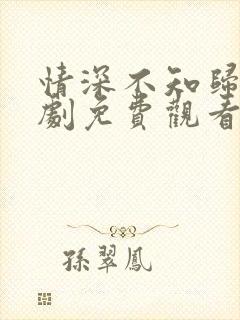 情深不知歸
劇免費觀看
孫翠鳳